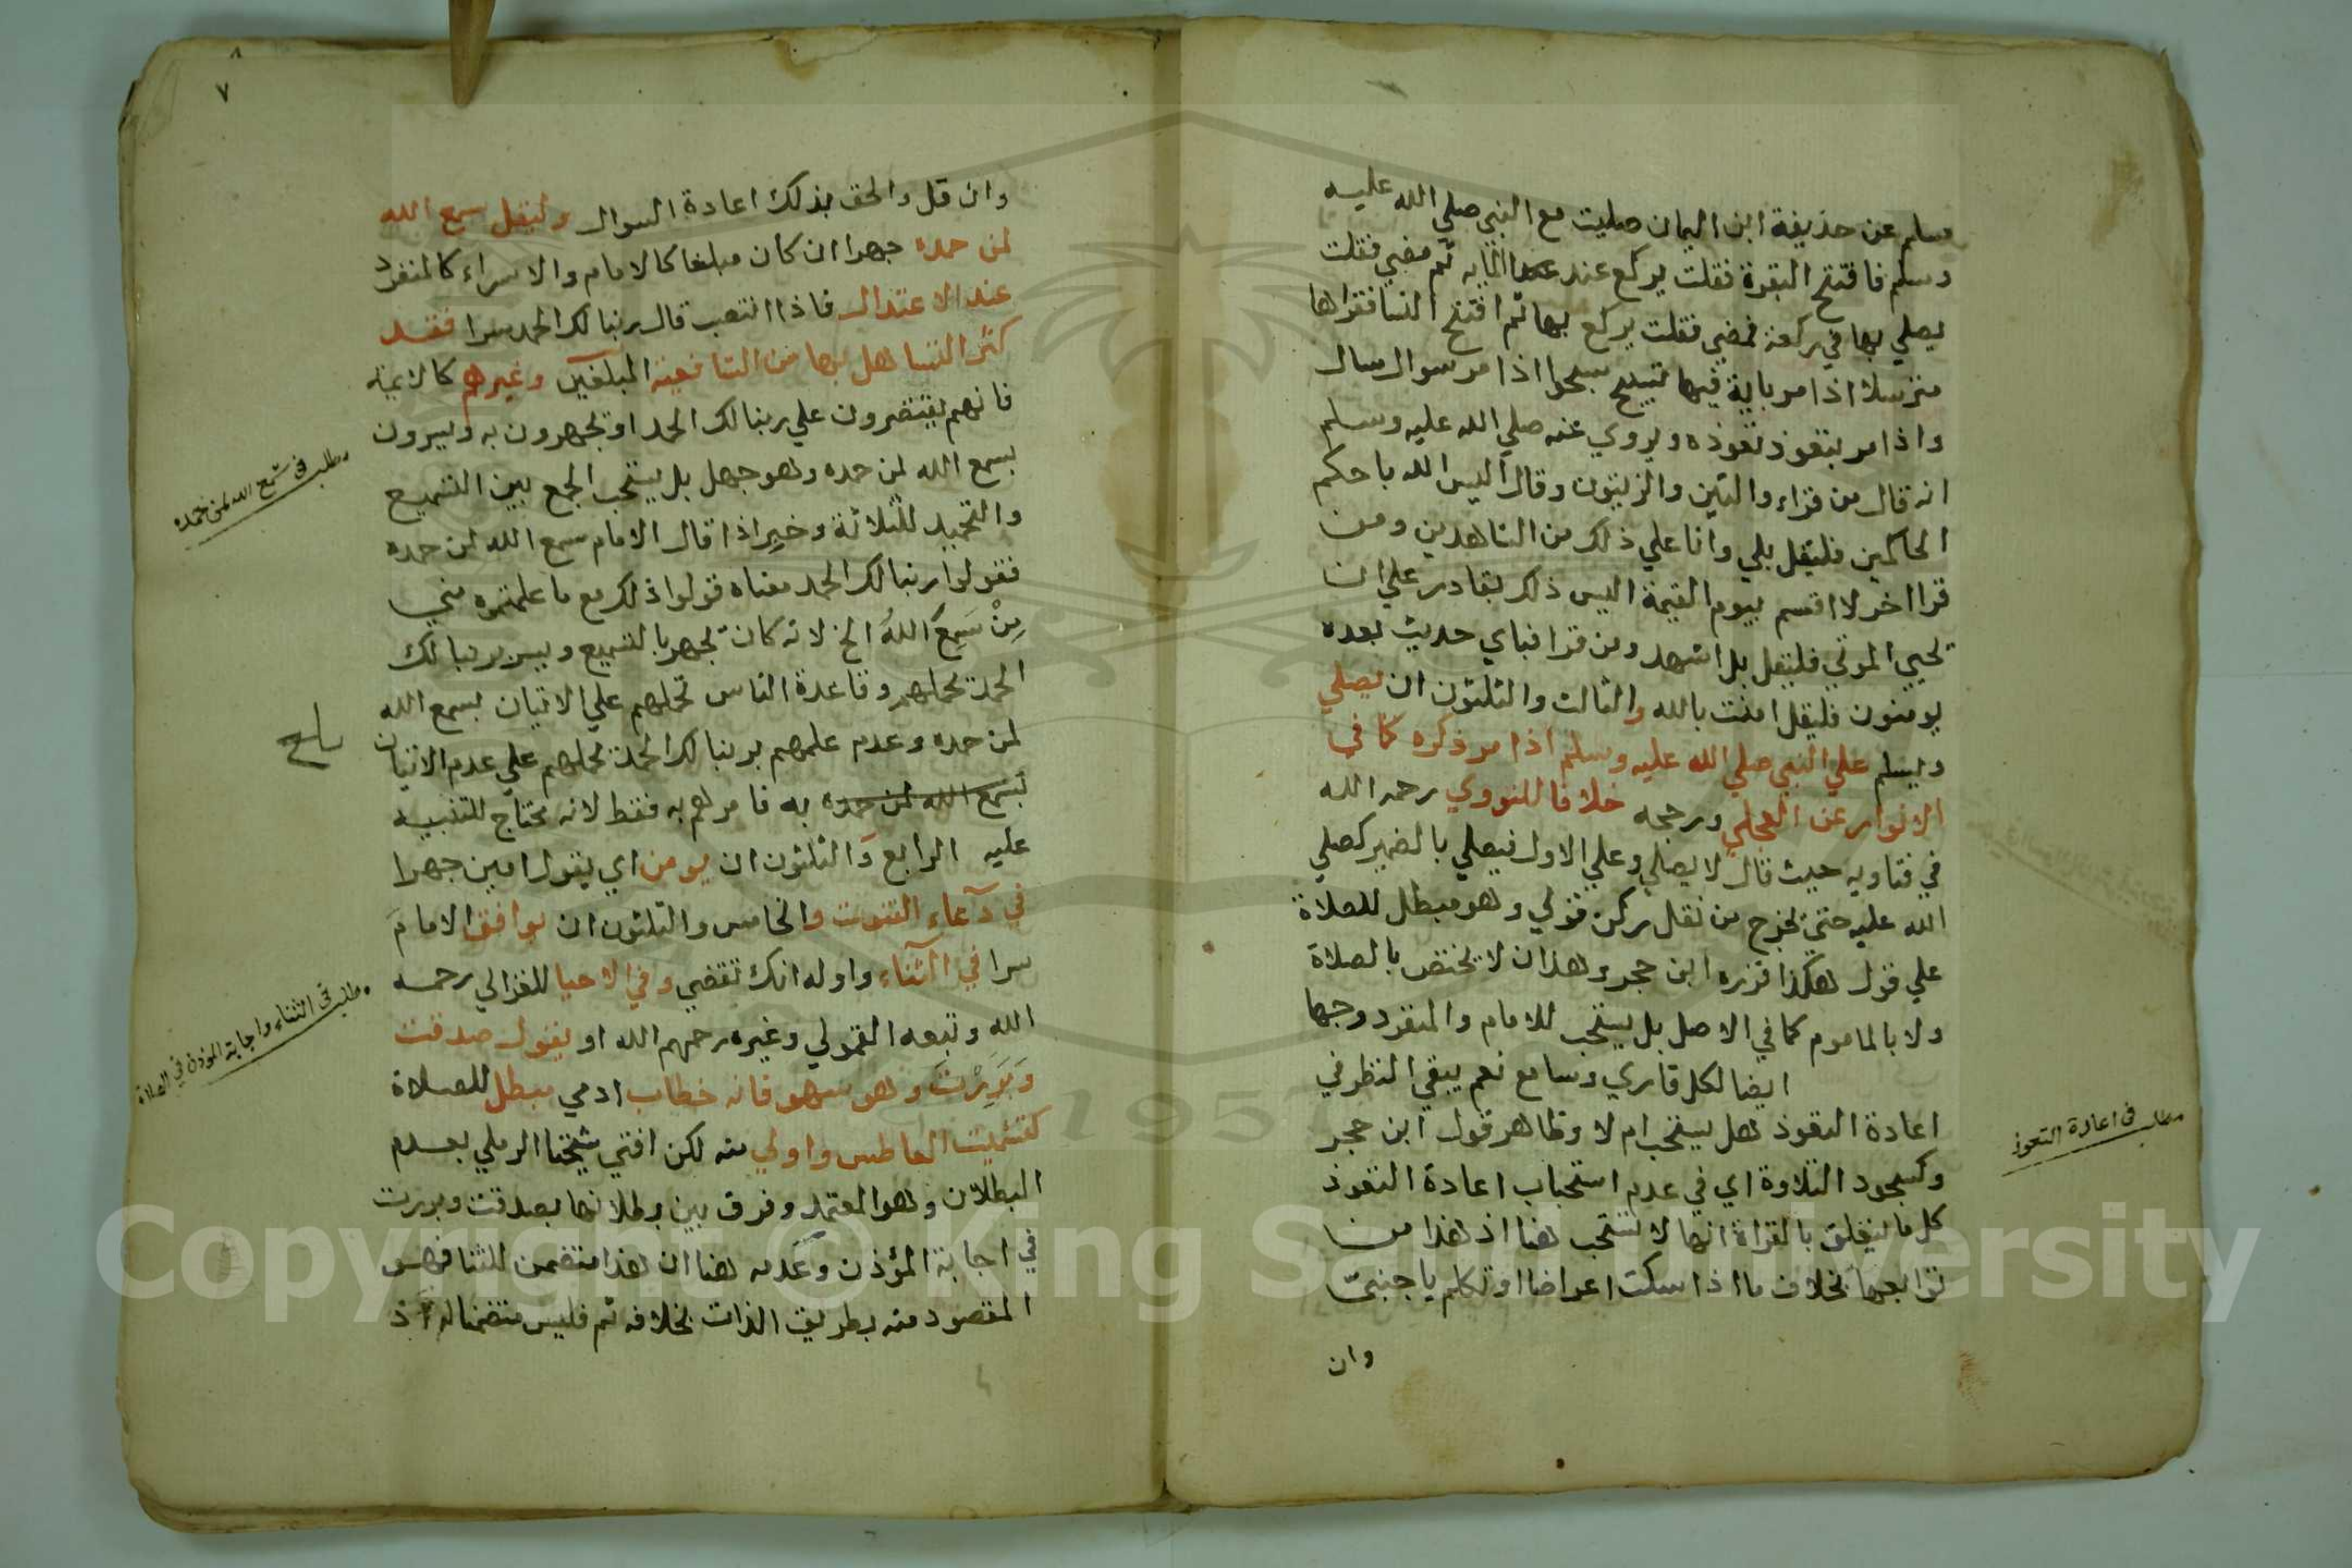 مسلم عن حذيفة ابن اليمان صليت مع النبي صلي الله عليه
وسلم فافتتح البقرة فقلت يركع عند المايه ثم مضي فقلت
يصلي بها في ركعة فمضي فقلت يركع بها ثم افتتح النسا فقراها
مترسلا اذا مر باية فيها تسبيح سبحوا اذا مر سوال سال
واذا مر بتعوذ تعوذ ه ويروي عنه صلي الله عليه وسلم
انه قال من قراء والتين والزيتون وقال اليس الله باحكم
الحاكمين فليقل بلي وانا علي ذلك من الشاهدين ومن
قرا اخر لا اقسم بيوم القيمة اليس ذلك بقادر علي ان
تحيي الموتي فليقل بلا اشهد ومن قرا فباي حديث بعده
يومنون فليقل امنت بالله والثالث والثلثون ان يصلي
ويسلم علي النبي صلي الله عليه وسلم اذا مر ذكره كما في
الانوار عن العجلي ورجحه خلافا للنووي رحمه الله
في فتاويه حيث قال لا يصلي وعلي الاول فيصلي بالضمير كصلي
الله عليه حتي يخرج من نقل ركن قولي وهو مبطل للصلاة
علي قول هكذا قرره ابن حجر وهذان لا يختص بالصلاة
ولا بالماموم كما في الاصل بل يستحب للامام والمنفرد وجها
ايضا لكل قاري وسامع نعم يبقي النظر في
اعادة التعوذ هل يستحب ام لا وظاهر قول ابن حجر
وكسجود التلاوة اي في عدم استحباب اعادة التعوذ
كل ما يتعلق بالقراة انها لا تستحب هنا اذ هذا من
توابعها بخلاف ما اذا سكت اعراضا او تكلم باجنبي
وان
مطلب في اعادة التعوذ
٧
وان قل والحق بذلك اعادة السوال وليقل سمع الله
لمن حمده جهرا ان كان مبلغا كالامام والا سراء كالمنفرد
عند الاعتدال فاذا انتصب قال ربنا لك الحمد سرا فقد
كثر التساهل بها من الشافعية المبلغين وغيرهم كالايمة
فانهم يقتصرون علي ربنا لك الحمد او يجهرون به ويسرون
بسمع الله لمن حمده وهو جهل بل يستحب الجمع بين التسميع
والتحميد للثلاثة وخبر اذا قال الامام سمع الله لمن حمده
فقولوا ربنا لك الحمد معناه قولوا ذلك مع ما علمتموه مني
من سَمِعَ اللهُ الخ لانه كان يجهر بالتسميع ويسر بربنا لك
الحمد تحملهم وقاعدة الناس تحملهم علي الاتيان بسمع الله
لمن حمده وعدم علمهم بربنا لك الحمد تحملهم علي عدم الاتيان
بسمع الله لمن حمده به فامرهم به فقط لانه محتاج للتنبيه
عليه الرابع والثلثون ان يومن اي يقول امين جهرا
في دعاء القنوت والخامس والثلثون ان يوافق الامام
سرا في الثناء واوله انك تقضي وفي الاحيا للغزالي رحمه
الله وتبعه القمولي وغيره رحمهم الله او يقول صدقت
وَبَرِرْتَ وهو سهو فانه خطاب ادمي مبطل للصلاة
كتشميت العاطس واولي منه لكن افتي شيخنا الرملي بعدم
البطلان وهو المعتمد وفرق بين بطلانها بصدقت وبررت
في اجابة المؤذن وعدمه هنا ان هذا متضمن للثنا فهو
المقصود منه بطريق الذات بخلافه ثم فليس متضمنا له اذ
مطلب في سمع الله لمن حمده
مطلب في الثناء واجابة المؤذن في الصلاة
Copyright © King Saud University
1957